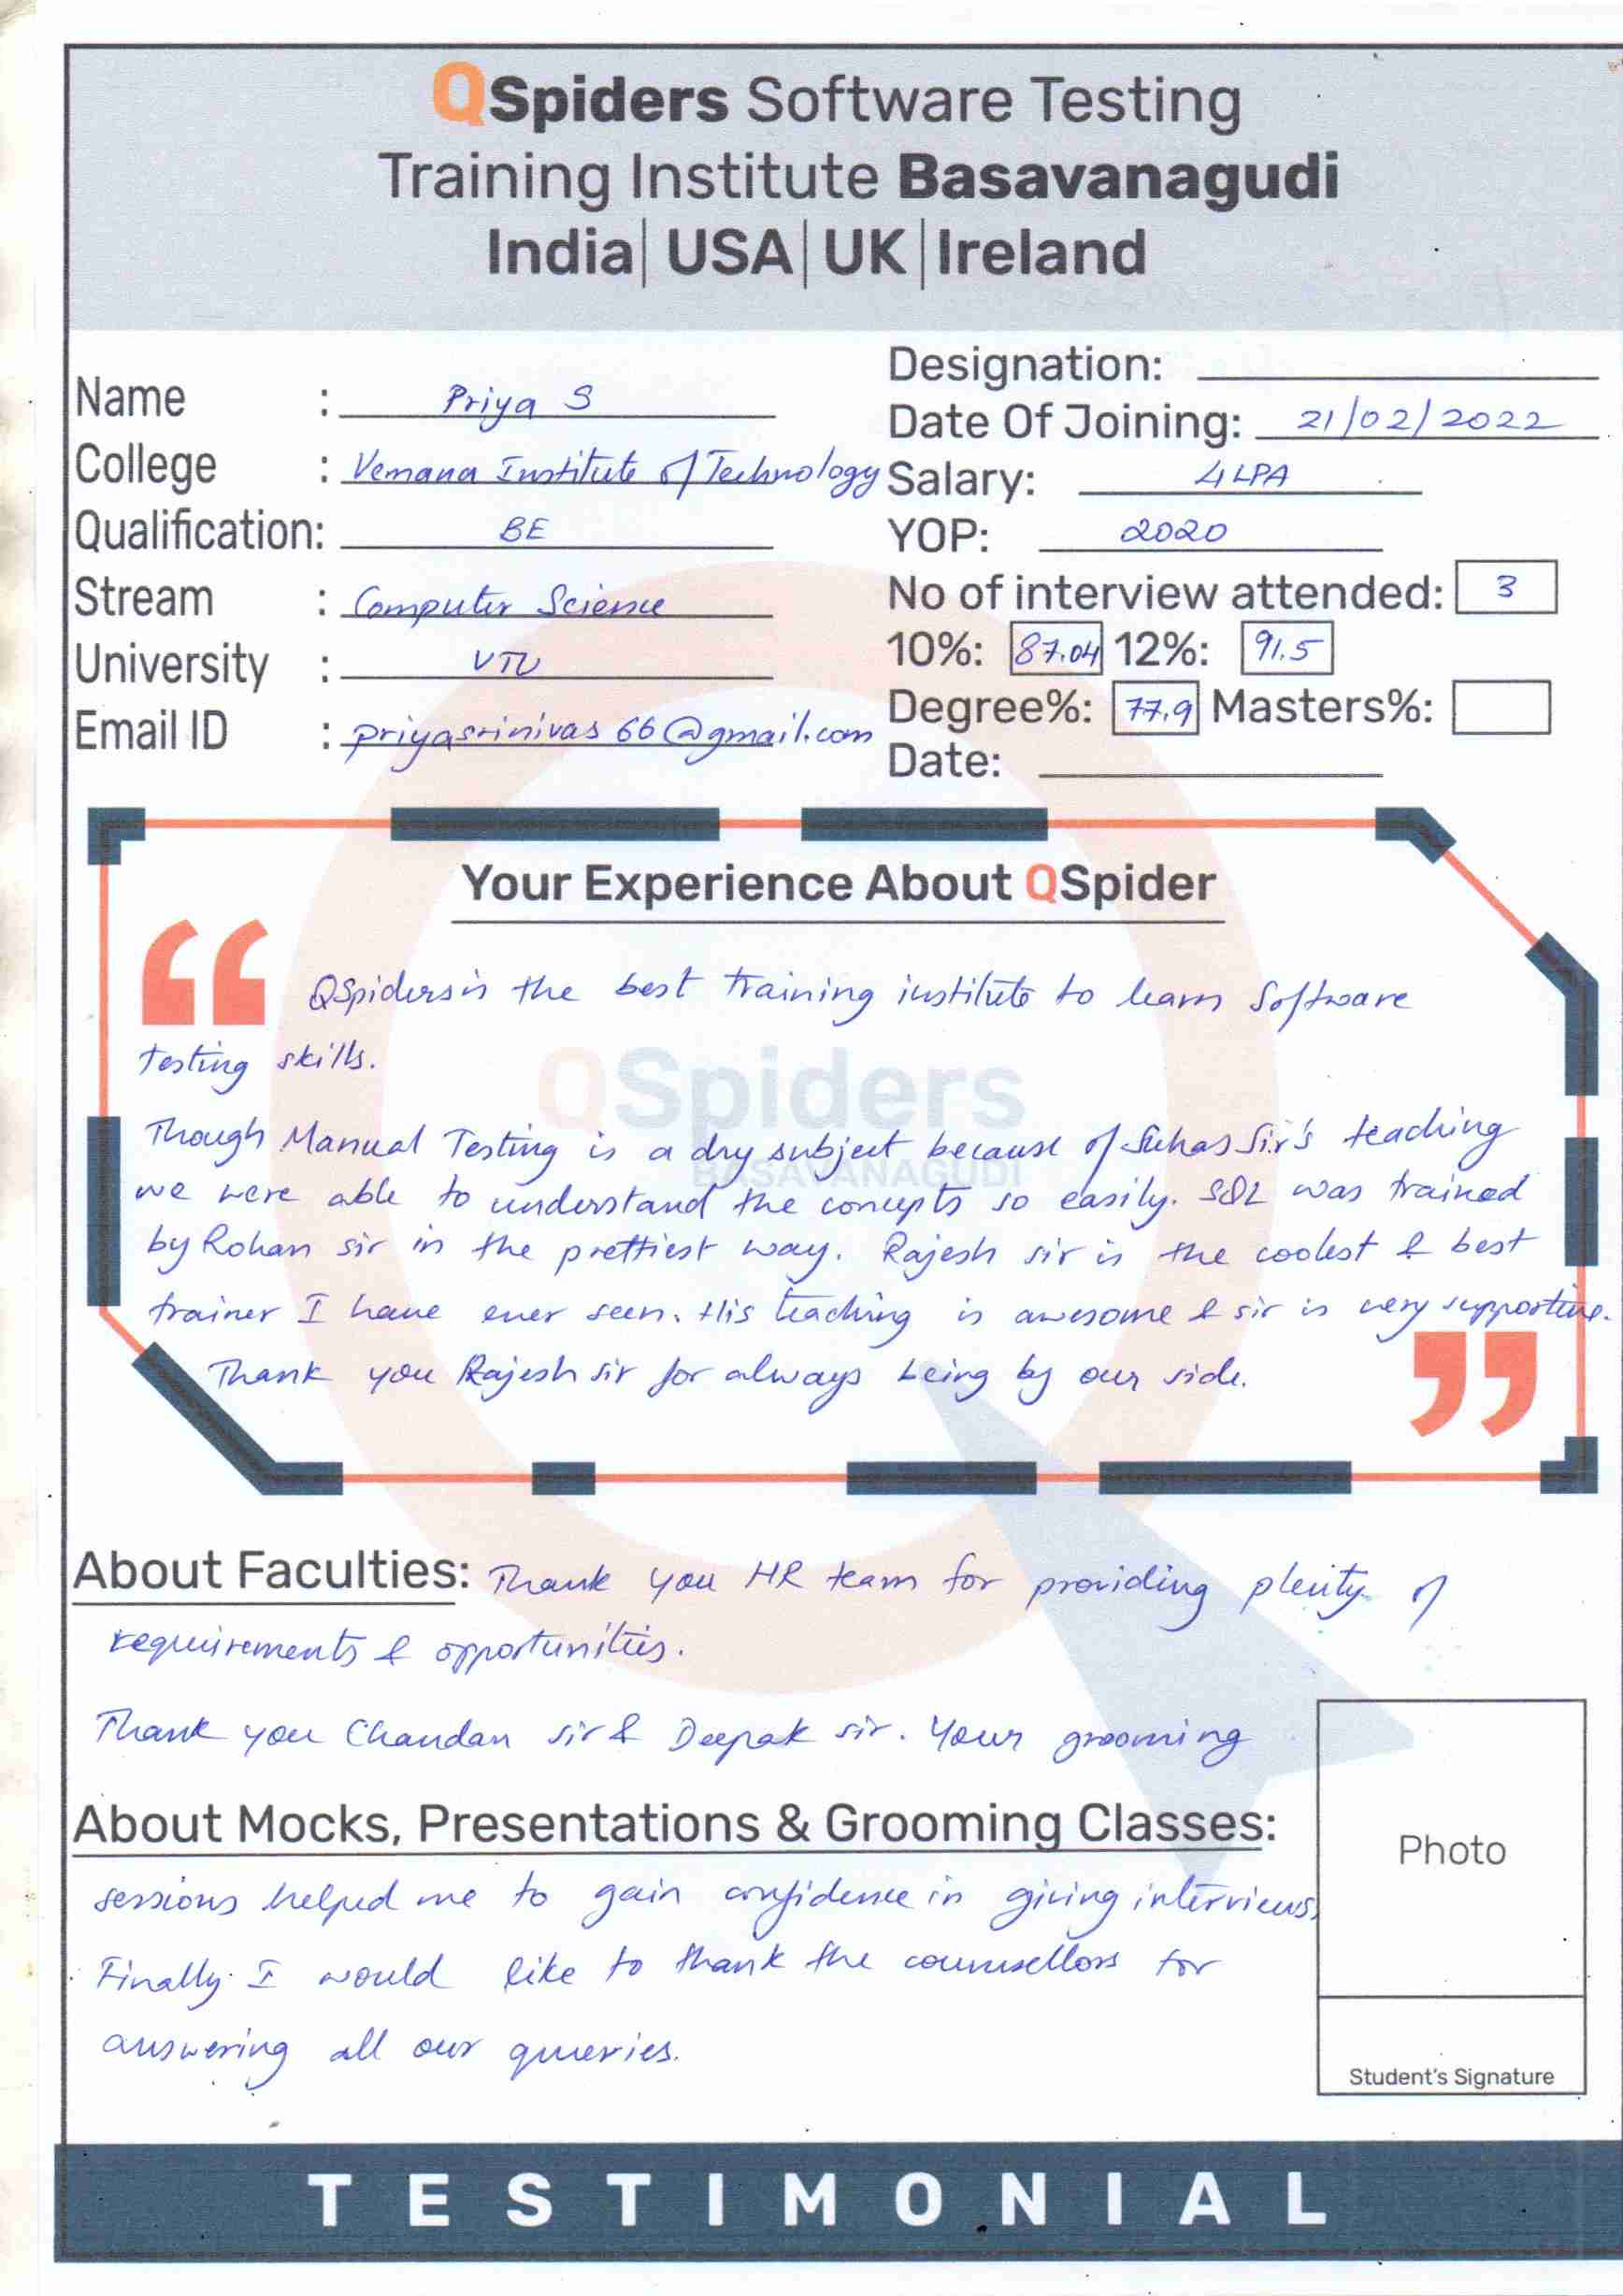 QSpiders Software Testing
Training Institute Basavanagudi
India| USA| UK| Ireland
Name : Priya S
College : Vemana Institute of Technology
Qualification: BE
Stream : Computer Science
University : VTU
Email ID : priyasrinivas66@gmail.com
Designation:
Date Of Joining: 21/02/2022
Salary: 4 LPA
YOP: 2020
No of interview attended: 3
10%: 87.04 12%: 91.5
Degree%: 77.9 Masters%:
Date:
Your Experience About QSpider
“
QSpiders is the best training institute to learn Software
testing skills.
Though Manual Testing is a dry subject because of Suhas Sir's teaching
we were able to understand the concepts so easily. SQL was trained
by Rohan sir in the prettiest way. Rajesh sir is the coolest & best
trainer I have ever seen. His teaching is awesome & sir is very supportive.
Thank you Rajesh sir for always being by our side.
”
QSpiders
BASAVANAGUDI
About Faculties: Thank you HR team for providing plenty of
requirements & opportunities.
Thank you Chandan sir & Deepak sir. Your grooming
About Mocks, Presentations & Grooming Classes:
sessions helped me to gain confidence in giving interviews.
Finally I would like to thank the counsellors for
answering all our queries.
Photo
Student's Signature
TESTIMONIAL